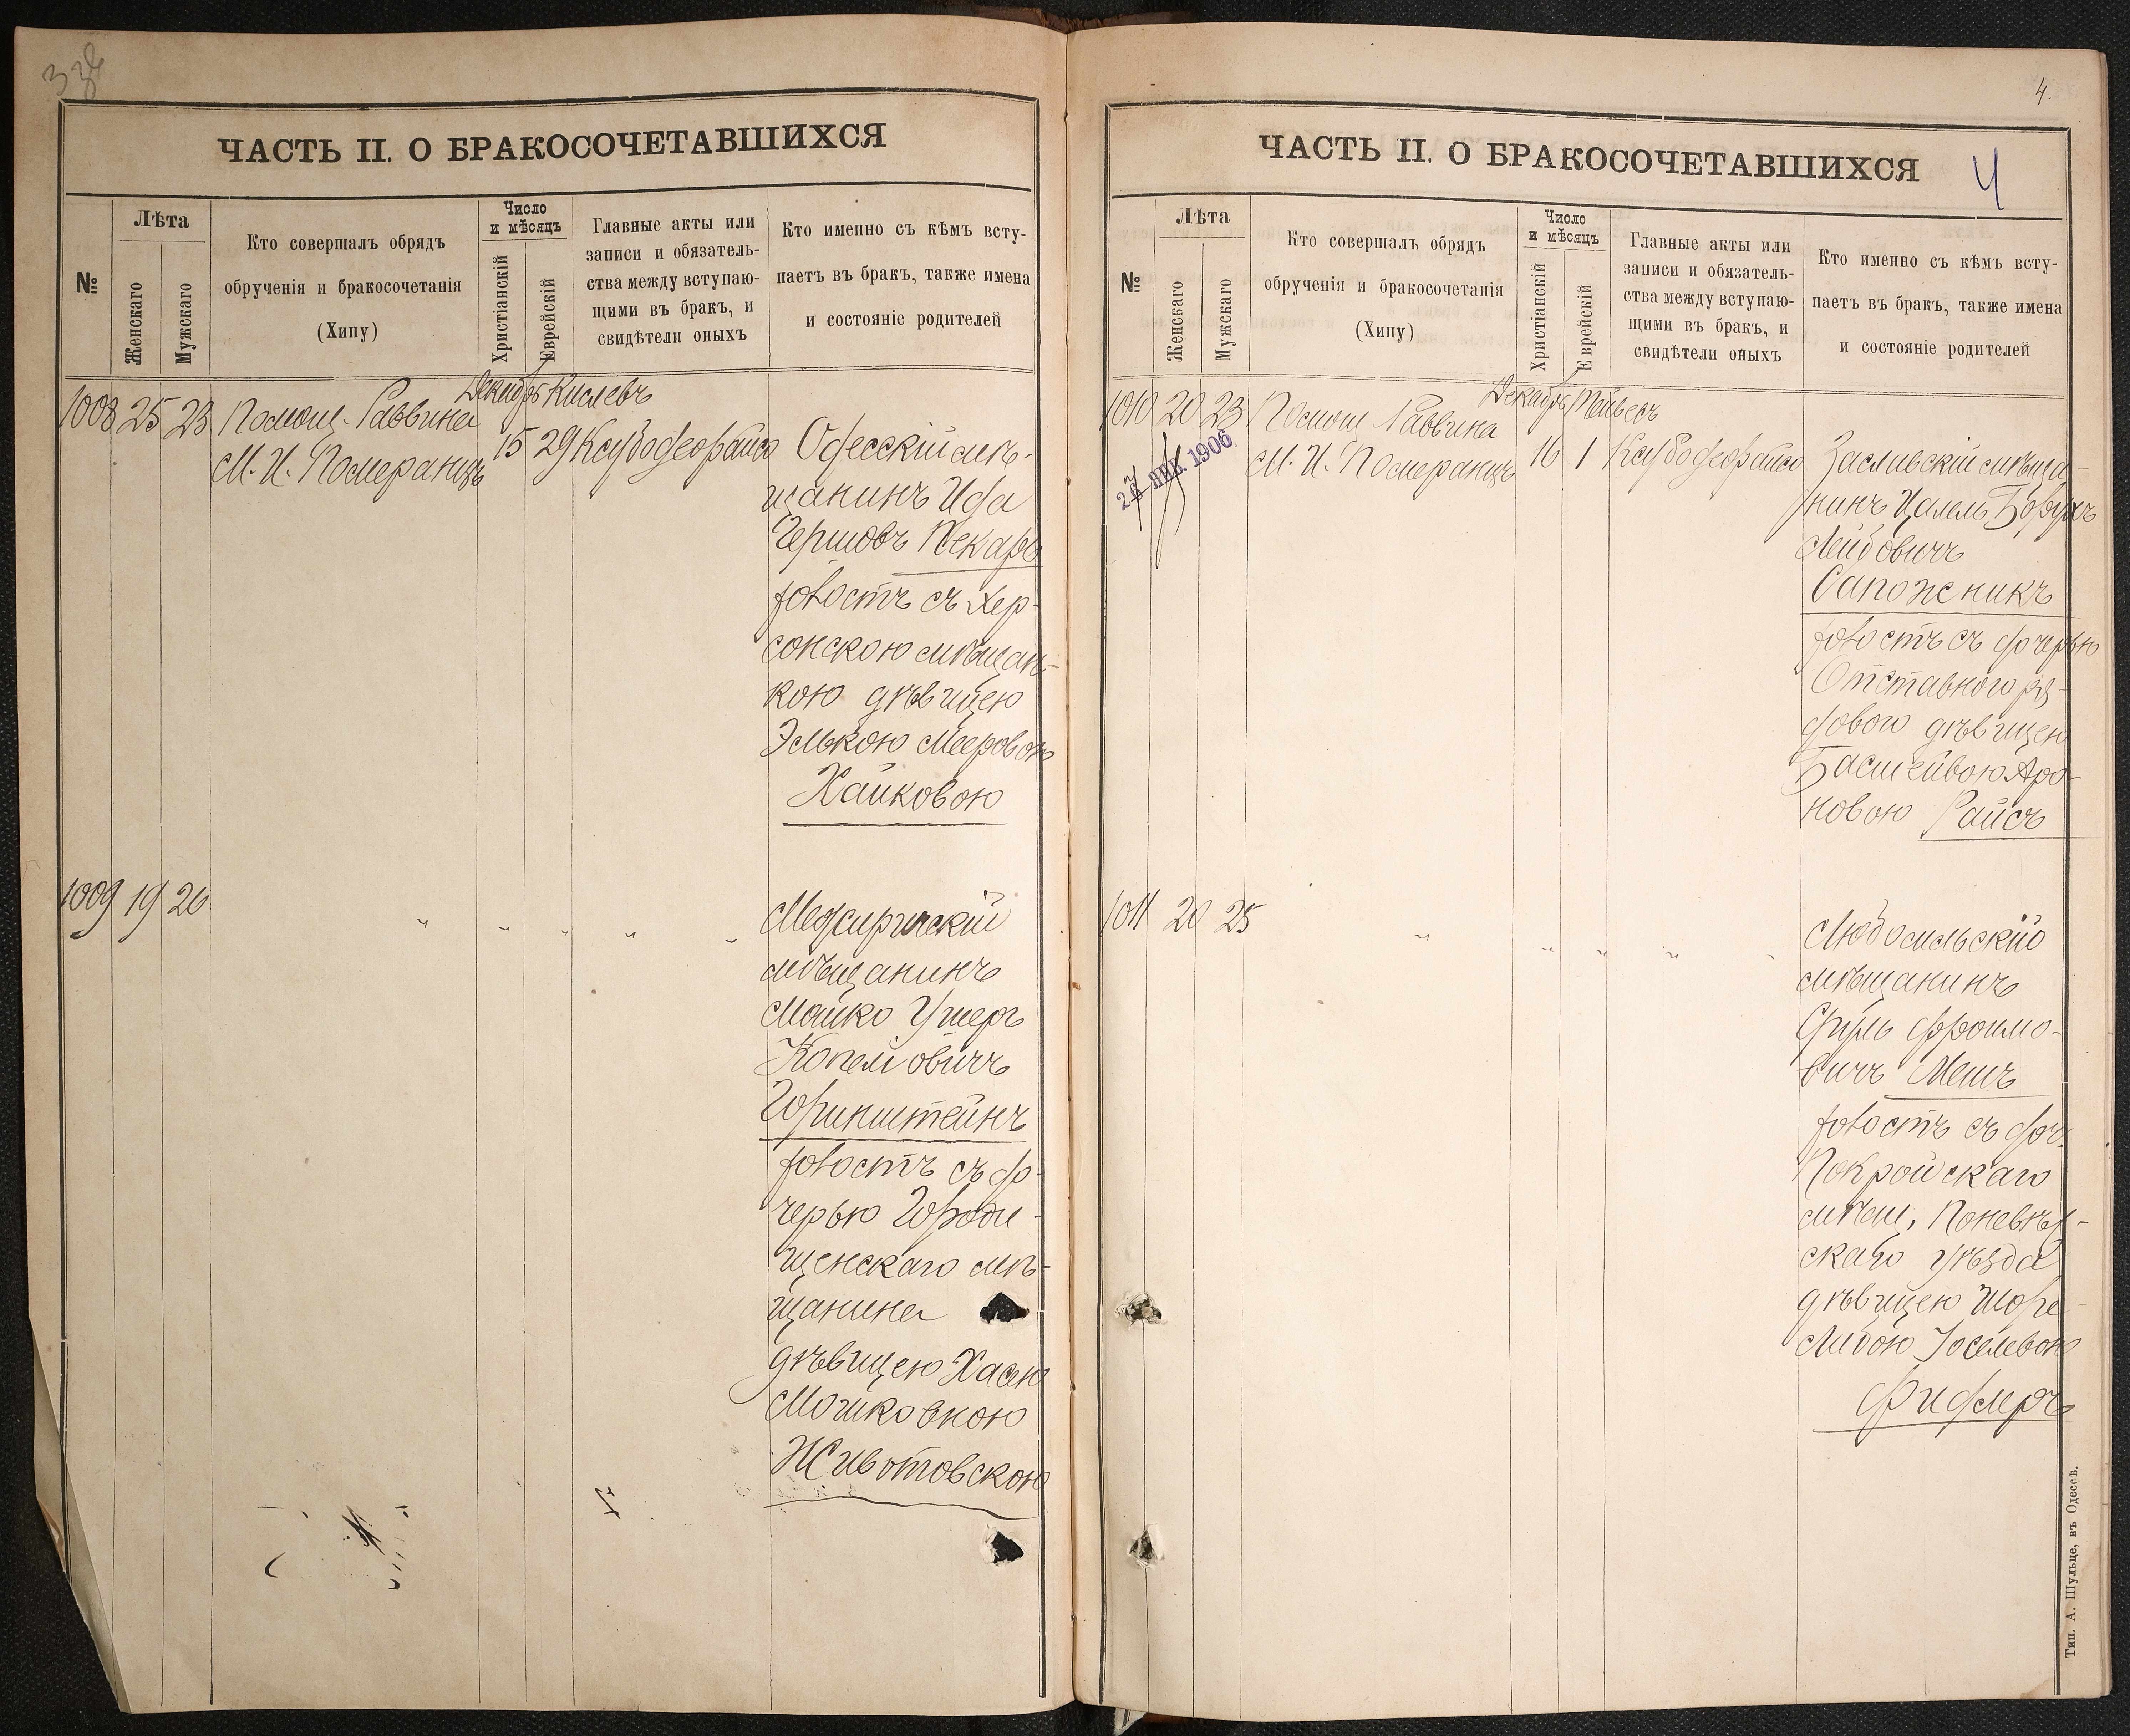 ЧАСТЬ II. О БРАКОСОЧЕТАВШИХСЯ
№
Лѣта
Женскаго
Мужскаго
Кто совершалъ обрядъ
обрученія и бракосочетанія
(Хипу)
Число
и мѣсяцъ
Христіанскій
Еврейскій
Главные акты или
записи и обязатель-
ства между вступаю-
щими въ бракъ, и
свидѣтели оныхъ
Кто именно съ кѣмъ всту-
паетъ въ бракъ, также имена
и состояніе родителей
Декабрь Кислевъ
1008 25 23 Помощ. Раввина
М. И. Померанцъ
15 29
Одесскій мѣ-
щанинъ Иda
Гершовъ Пекарь
холостъ съ Хер-
сонскою мѣщан-
кою дѣвицею
Элькою Мееровою
Хаиковою
1009 19 20 " " " " "
мѣщанинъ
Мошко Ушеръ
Копелiовичъ
Горинштейнъ
холостъ съ до-
черью Городи-
щенскаго мѣ-
щанина
дѣвицею Хасею
Мошковною
Животовскою
4.
ЧАСТЬ II. О БРАКОСОЧЕТАВШИХСЯ
4
№
Лѣта
Женскаго
Мужскаго
Кто совершалъ обрядъ
обрученія и бракосочетанія
(Хипу)
Число
и мѣсяцъ
Христіанскій
Еврейскій
Главные акты или
записи и обязатель-
ства между вступаю-
щими въ бракъ, и
свидѣтели оныхъ
Кто именно съ кѣмъ всту-
паетъ въ бракъ, также имена
и состояніе родителей
Декабрь Тейвесъ
1010 20 23 Помощ Раввина
М. И. Померанцъ
16 1
ЯНВ. 1906
Заславскій мѣща-
нинъ Цалель Борухъ
Лейбовичъ
Сапожникъ
холостъ съ дочерью
Отставного ря-
дового дѣвицею
Басшейвою Аро-
новою Райсъ
1011 20 25 " " " "
Любомльскій
мѣщанинъ
Сруль Фроимо-
вичъ Мешъ
холостъ съ доч.
Покройскаго
мѣщ. Поневѣж-
скаго уѣзда
дѣвицею Шоре-
Либою Іоселевою
Фидлеръ
Тип. А. Шульце, въ Одессѣ.